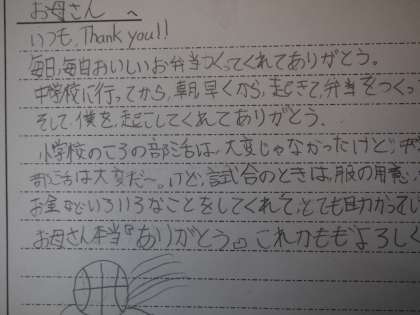 お母さん へ
いつも、Thank you!!
毎日、毎日おいしいお弁当つくってくれてありがとう。
中学校に行ってから、朝、早くから、起きて弁当をつくっ
そして、僕を、起こしてくれてありがとう、
小学校のころの部活は、大変じゃなかったけど、中
部活は大変だー。けど、試合のときは、服の用意、
お金などいろいろなことをしてくれて、とても助かってい
お母さん本当『ありがとう』これからもよろしく